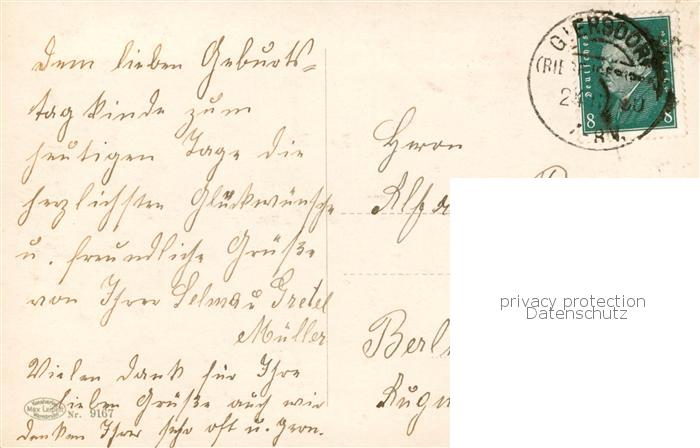 Dem lieben Geburts-
tagskinde zum
heutigen Tage die
herzlichsten Glückwünsche
u. freundliche Grüße
von Ihrer Selma u Gretel
Müller
Vielen Dank für Ihre
lieben Grüße auch wir
denken Ihrer sehr oft u.
Max Leipelt
Nr. 9167
GIERSDORF
8 8
Deutsches
Herrn
Alf
privacy protection
Datenschutz
Berl
Augu